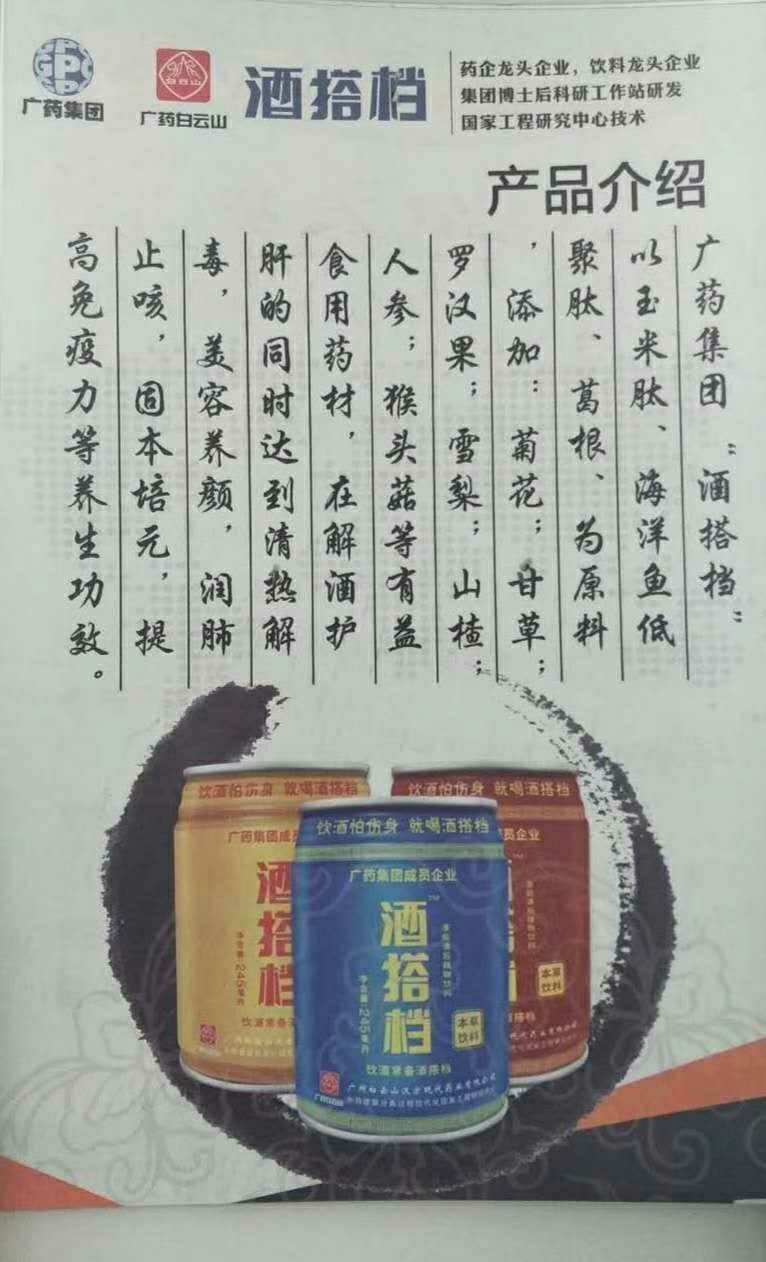 广药集团
广药白云山
酒搭档
药企龙头企业，饮料龙头企业
集团博士后科研工作站研发
国家工程研究中心技术
产品介绍
广药集团“酒搭档”
以玉米肽、海洋鱼低
聚肽、葛根、为原料
，添加：菊花；甘草；
罗汉果；雪梨；山楂；
人参；猴头菇等有益
食用药材，在解酒护
肝的同时达到清热解
毒，美容养颜，润肺
止咳，固本培元，提
高免疫力等养生功效。
饮酒怕伤身 就喝酒搭档
广药集团成
酒搭档
净含量:245毫升
饮酒常备酒
饮酒怕伤身 就喝酒搭档
广药集团成员企业
酒搭档
TM
净含量:245毫升
本草
饮料
饮酒常备酒搭档
广州白云山汉方现代药业有限公司
饮酒怕伤身 就喝酒搭档
成员企业
本草
饮料
酒搭档